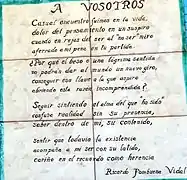 A VOSOTROS
Casual encuentro fuimos en la vida,
dolor del pensamiento en un suspiro
cuando en rejas del ser al "no ser" miro
aferrada a mi pena en tu partida.
¿Por qué el beso o una lágrima sentida
no podrá dar al mundo un nuevo giro,
conseguir esa llave a la que aspiro
abriendo esta razón incomprendida?
Seguir sintiendo el alma del que ha sido
confusa realidad sin su presencia,
saber dentro de mí, su contenido,
sentir que todavía la existencia
acompaña a mi ser con su latido,
cariño en el recuerdo como herencia
Ricardo Vidal